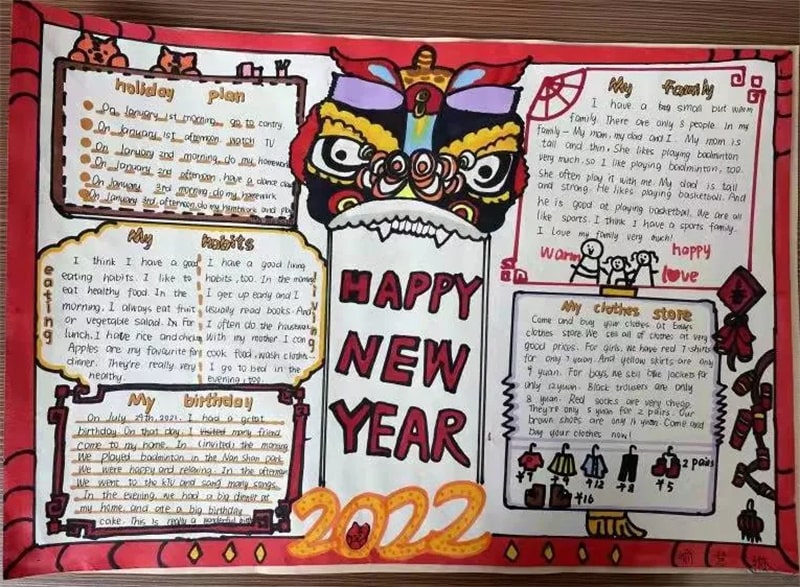 holiday plan
On January 1st morning, go to contry
On January 1st afternoon, watch TV
On January 2nd morning, do my homework
On January 2nd afternoon, have a dance class
On January 3rd morning, do my homework
On January 3rd afternoon, do my homework and play
My habits
eating
I think I have a good
eating habits. I like to
eat healthy food. In the
morning, I always eat fruit
or vegetable salad. In For
lunch, I have rice and chicken
Apples are my favourite for
dinner. They're really very
healthy.
I have a good living
habits, too. In the morning
I get up early and I
usually read books. And
I often do the housework
With my mother. I can
cook food, wash clothes
I go to bed in the
evening, too.
living
My birthday
On July 29th, 2021. I had a great
birthday. On that day, I visited many friend
come to my home. In (invited) the morning
We played badminton in the Nan Shan park.
We were happy and relaxing. In the afternoon
We went to the KTV and sang many songs.
In the evening, we had a big dinner at
my home, and ate a big birthday
cake. This is really a wonderful birthday
HAPPY
NEW
YEAR
2022
My Family
I have a big small but warm
family. There are only 3 people in my
family - My mom, my dad and I. My mom is
tall and thin. She likes playing badminton
very much, so I like playing badminton, too.
She often play it with me. My dad is tall
and strong. He likes playing basketball. And
he is good at playing basketball. We are all
like sports. I think I have a sports family.
I love my family very much!
warm happy
love
My clothes store
Come and buy your clothes at
clothes store. We sell all of clothes at very
good prices. For girls, we have red T-shirts
for only 7 yuan. And yellow skirts are only
9 yuan. For boys, we sell blue jackets for
only 12 yuan. Black trousers are only
8 yuan. Red socks are very cheap.
They're only 5 yuan for 2 pairs. Our
brown shoes are only 16 yuan. Come and
buy your clothes now!
2 pairs
¥7 ¥9 ¥12 ¥8 ¥5
¥16